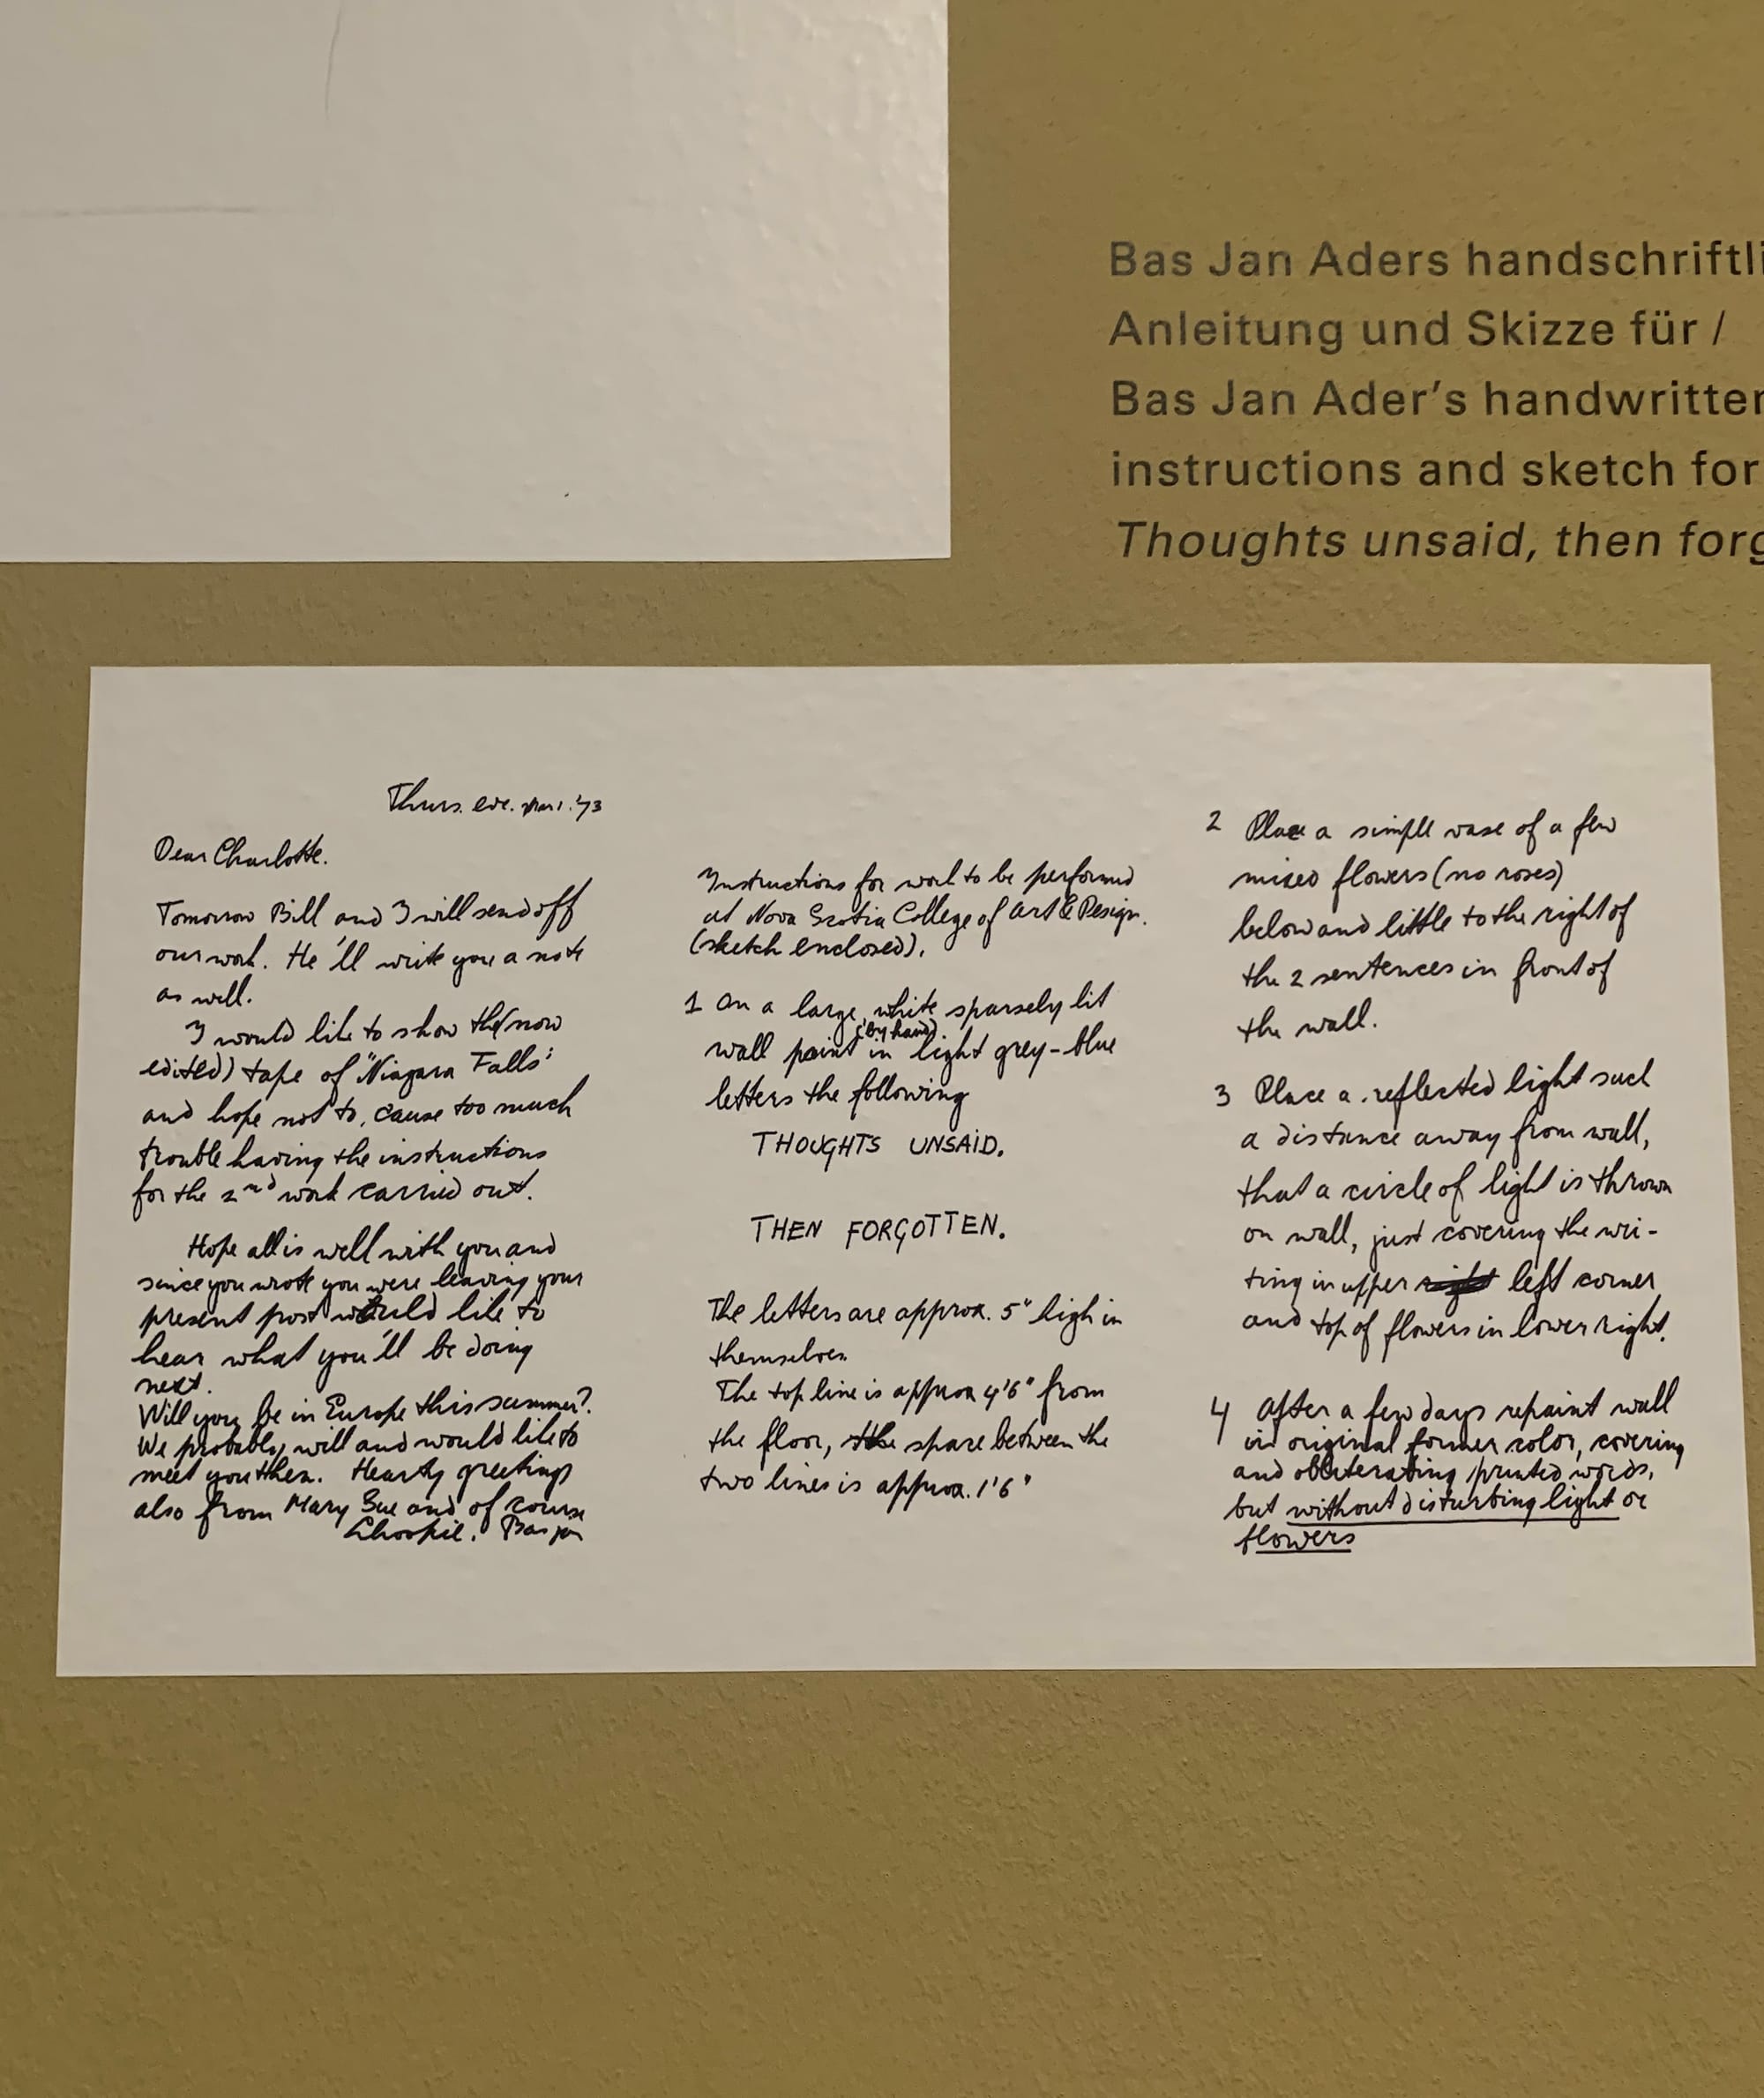 Bas Jan Aders handschriftli
Anleitung und Skizze für /
Bas Jan Ader's handwritten
instructions and sketch for
Thoughts unsaid, then forg
Thurs. eve. Mar 1. '73
Dear Charlotte.
Tomorrow Bill and I will send off
our work. He'll write you a note
as well.
I would like to show the (now
edited) tape of "Niagara Falls"
and hope not to, cause too much
trouble having the instructions
for the 2nd work carried out.
Hope all is well with you and
since you wrote you were leaving your
present post would like to
hear what you'll be doing
next.
Will you be in Europe this summer?
We probably will and would like to
meet you then. Hearty greetings
also from Mary Sue and of course
Bas Jan
Instructions for work to be performed
at Nova Scotia College of Art & Design.
(sketch enclosed).
1 On a large, white sparsely lit
(by hand)
wall paint in light grey-blue
letters the following
THOUGHTS UNSAID.
THEN FORGOTTEN.
The letters are approx. 5" high in
themselves.
The top line is approx 4'6" from
the floor, the space between the
two lines is approx. 1'6"
2 Place a simple vase of a few
mixed flowers (no roses)
below and little to the right of
the 2 sentences in front of
the wall.
3 Place a reflected light such
a distance away from wall,
that a circle of light is thrown
on wall, just covering the wri-
ting in upper right left corner
and top of flowers in lower right.
4 After a few days repaint wall
in original former color, covering
and obliterating printed words,
but without disturbing light or
flowers